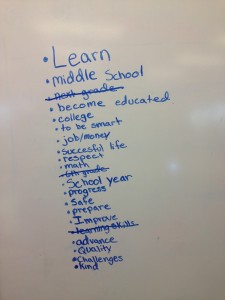 • Learn
• middle School
• next grade
• become educated.
• college
• to be smart
• job/money
• succesful life
• respect
• math
• 6th grade
• School year
• progress
• Safe
• prepare
• Improve
• learning skills
• advance
• Quality
• Challenges
• Kind